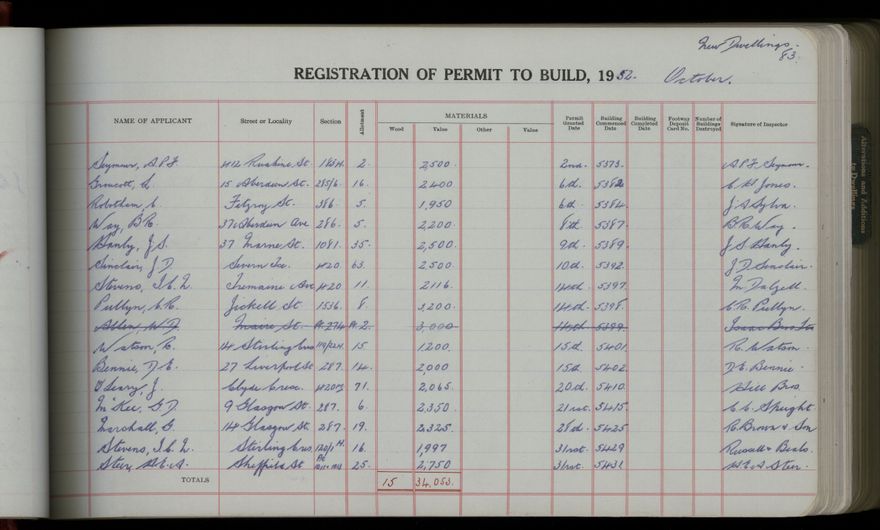 New Dwellings.
83.
REGISTRATION OF PERMIT TO BUILD, 1952. October.
NAME OF APPLICANT Street or Locality Section Allotment MATERIALS Permit Granted Date Building Commenced Date Building Completed Date Footway Deposit Card No. Number of Buildings Destroyed Signature of Inspector
Wood Value Other Value
Seymour, A.P.F. 412 Ruahine St. 2. 2,500. 2nd. 5373. A.P.F. Seymour.
15 Aberdeen St. 285/6. 16. 2400 6th. 5382 Jones.
Fitzroy St. 386. 5. 1,950 6th. 5384. J.A. Sylva.
Way, B.R. 37 Aberdeen Ave 286. 5. 2,200. 8th. 5387. B.R. Way.
Hanly, J.S. 37 Marne St. 1081. 35. 2,500. 9th. 5389. J.S. Hanly.
Sinclair, J.D. Severn Tce. 420. 63. 2,500 10th. 5392. J.D. Sinclair.
Stevens, I.C.L. Tremaine Ave 420 11. 2116. 14th. 5397. M. Dalzell.
Pullyn, C.R. Jickell St 1536. 8. 3,200. 14th. 5398. C.R. Pullyn.
3,000 14th. 5399
Watson, R. 14 Stirling Cres 15 1200. 15th. 5401. R. Watson.
Bennie, D.E. 27 Liverpool St 287. 14. 2,000 15th. 5402. D.E. Bennie.
O'Leary, J. Clyde Cresc. 71. 2,065. 20th. 5410. Hill Bros
McKee, G.D. 9 Glasgow St. 287. 6. 2,350. 21st. 5415. Speight
Marshall, G. 14 Glasgow St. 287. 19. 2,325. 28th. 5425 R. Brown & Son
Stevens, I.C.L. Stirling Cres 16. 1,997 31st. 5429 Russell &
Sheffield St 25. 2,750 31st. 5431
TOTALS 15 34,053.
Alterations and Additions to Dwellings